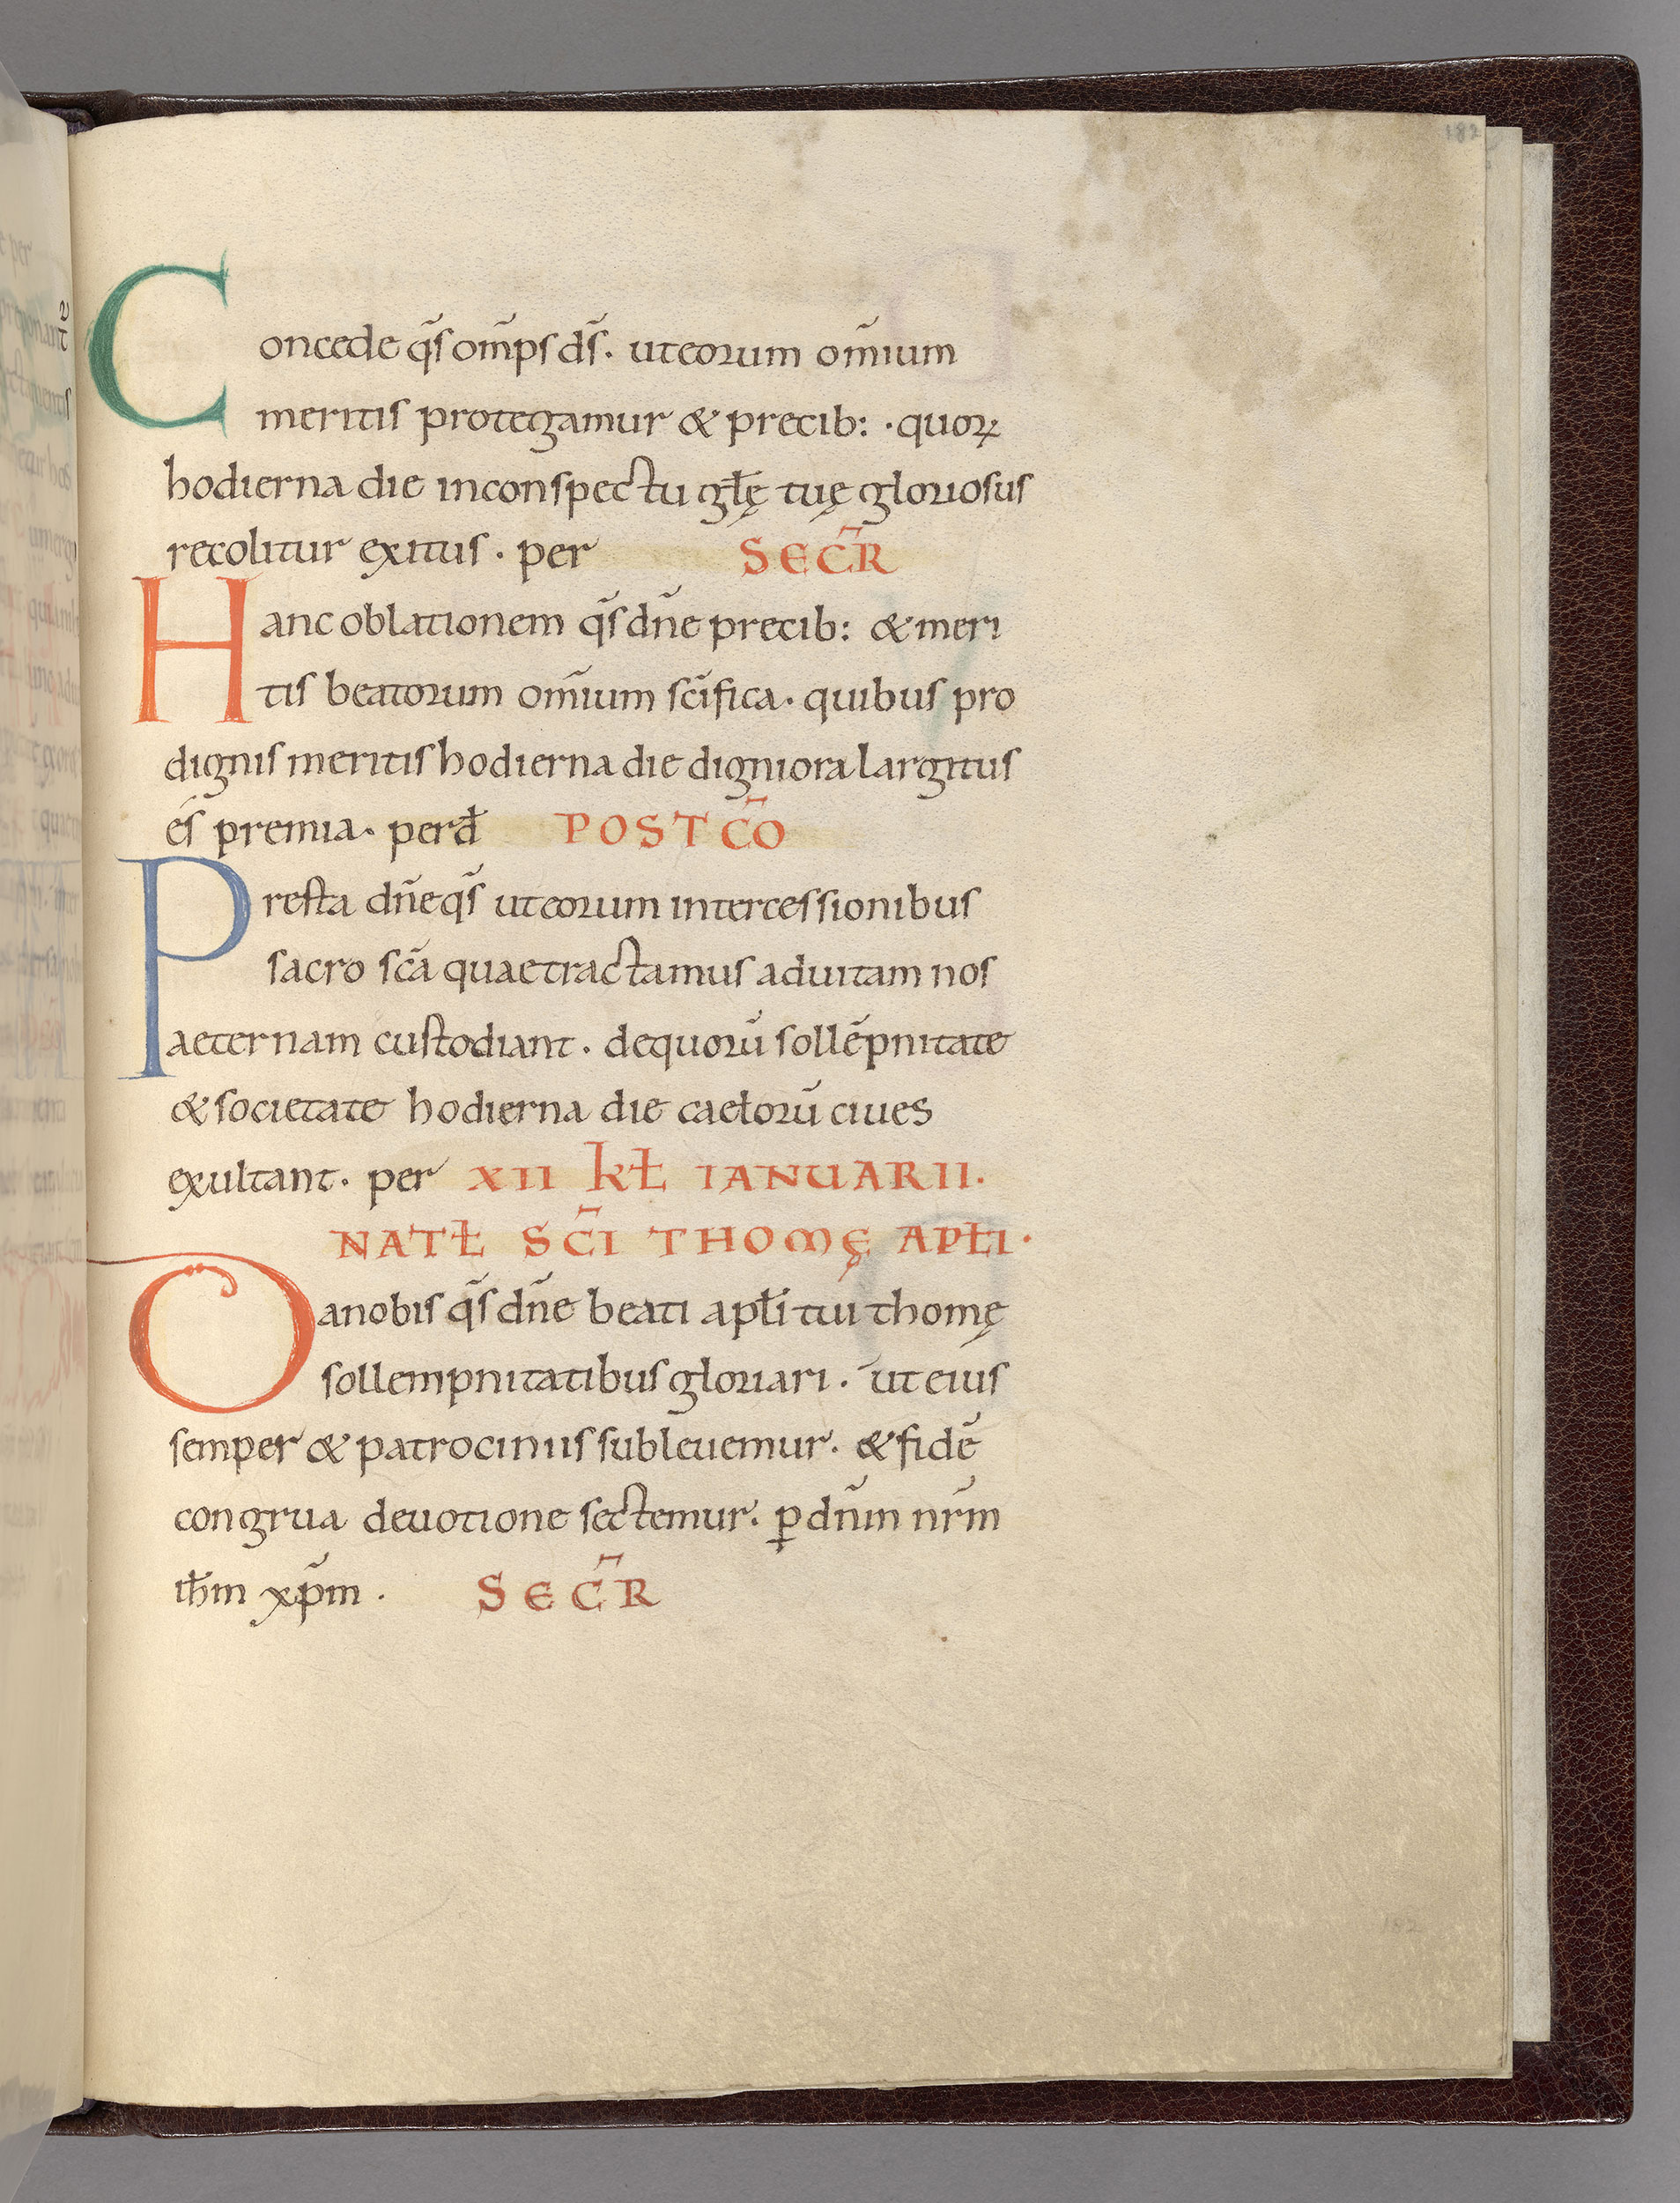 182
Concede q̄s om̄ps ds̄. ut eorum om̄ium
meritis protegamur & precib: . quoꝝ
hodierna die in conspectu gł̄ę tuę gloriosus
recolitur exitus . per SEC̄R
Hanc oblationem q̄s dn̄e precib: & meri
tis beatorum om̄ium sc̄ifica. quibus pro
dignis meritis hodierna die digniora largitus
ēs premia. per đ POST C̄O
Presta dn̄e q̄s ut eorum intercessionibus
sacro sc̄a quae tractamus ad uitam nos
aeternam custodiant. de quorū sollēpnitate
& societate hodierna die caelorū ciues
exultant. per XII KŁ IANUARII.
NATŁ SC̄I THOMĘ APŁI.
Da nobis q̄s dn̄e beati apłi tui thomę
sollempnitatibus gloriari. ut eius
semper & patrociniis subleuemur. & fidē
congrua deuotione sectemur. ꝑ dn̄m nr̄m
iħm xp̄m . SEC̄R
182